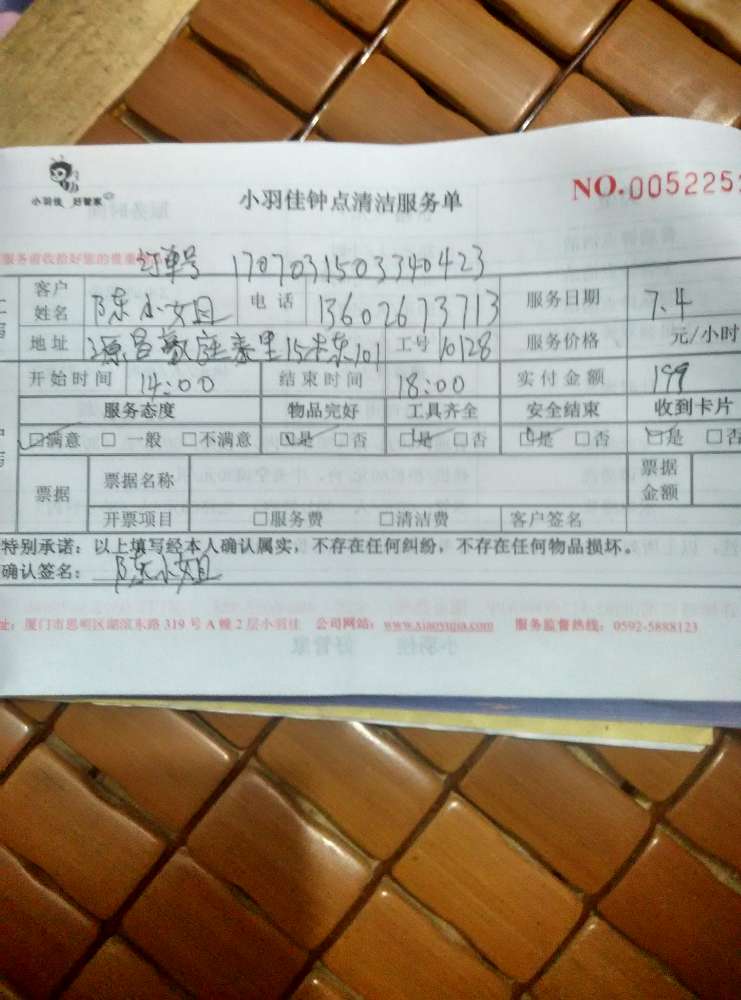 小羽佳 好管家
小羽佳钟点清洁服务单
NO.005225
服务前收拾好您的贵重
订单号 1707031503340423
客户姓名 陈小姐 电话 13602673713 服务日期 7.4
地址 源昌豪庭泰里15 101 工号 10128 服务价格 元/小时
开始时间 14:00 结束时间 18:00 实付金额 199
服务态度 物品完好 工具齐全 安全结束 收到卡片
□满意 □一般 □不满意 □是 □否 □是 □否 □是 □否 □是 □否
票据 票据名称 票据金额
开票项目 □服务费 □清洁费 客户签名
特别承诺：以上填写经本人确认属实，不存在任何纠纷，不存在任何物品损坏。
确认签名：陈小姐
址：厦门市思明区湖滨东路 319 号 A 幢 2 层小羽佳 公司网站：www.xiaoyujia.com 服务监督热线：0592-5888123